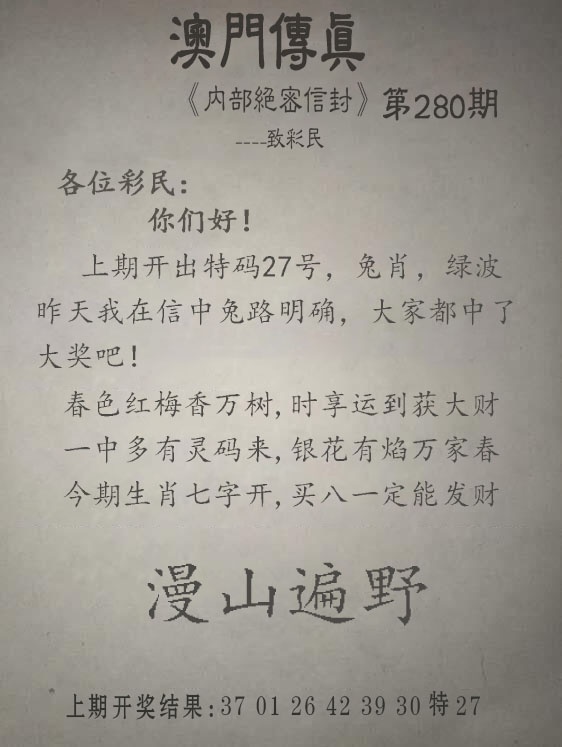 澳門傳眞
《内部絕密信封》第280期
----致彩民
各位彩民：
你们好！
上期开出特码27号，兔肖，绿波
昨天我在信中兔路明确，大家都中了
大奖吧！
春色红梅香万树,时享运到获大财
一中多有灵码来,银花有焰万家春
今期生肖七字开,买八一定能发财
漫山遍野
上期开奖结果:37 01 26 42 39 30 特 27